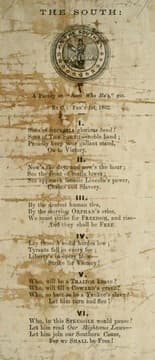 THE SOUTH:
A Parody on "Scots Wha Hae," etc.
1862.
I.
Sons of glorious land!
Sons of noble land!
Proudly keep your gallant stand,
On to Victory.
II.
Now's the day, and now's the hour;
See the front of battle lower;
See approach Lincoln's power,
Chains and Slavery.
III.
By the dearest human ties,
By the starving ORPHAN'S cries,
We must strike for FREEDOM, and rise—
And they shall be FREE.
IV.
Lay low;
Tyrants fall in every foe;
Liberty's in every blow—
Strike for Victory!
V.
Who, will be a TRAITOR
Who, will fill a COWARD'S grave?
Who, so base as be a Yankee's slave?
Let him turn and flee!
VI.
Who, in this STRUGGLE would pause?
Let him read Our Righteous Laws—
Let him join our Southern Cause,
For we SHALL be Free!